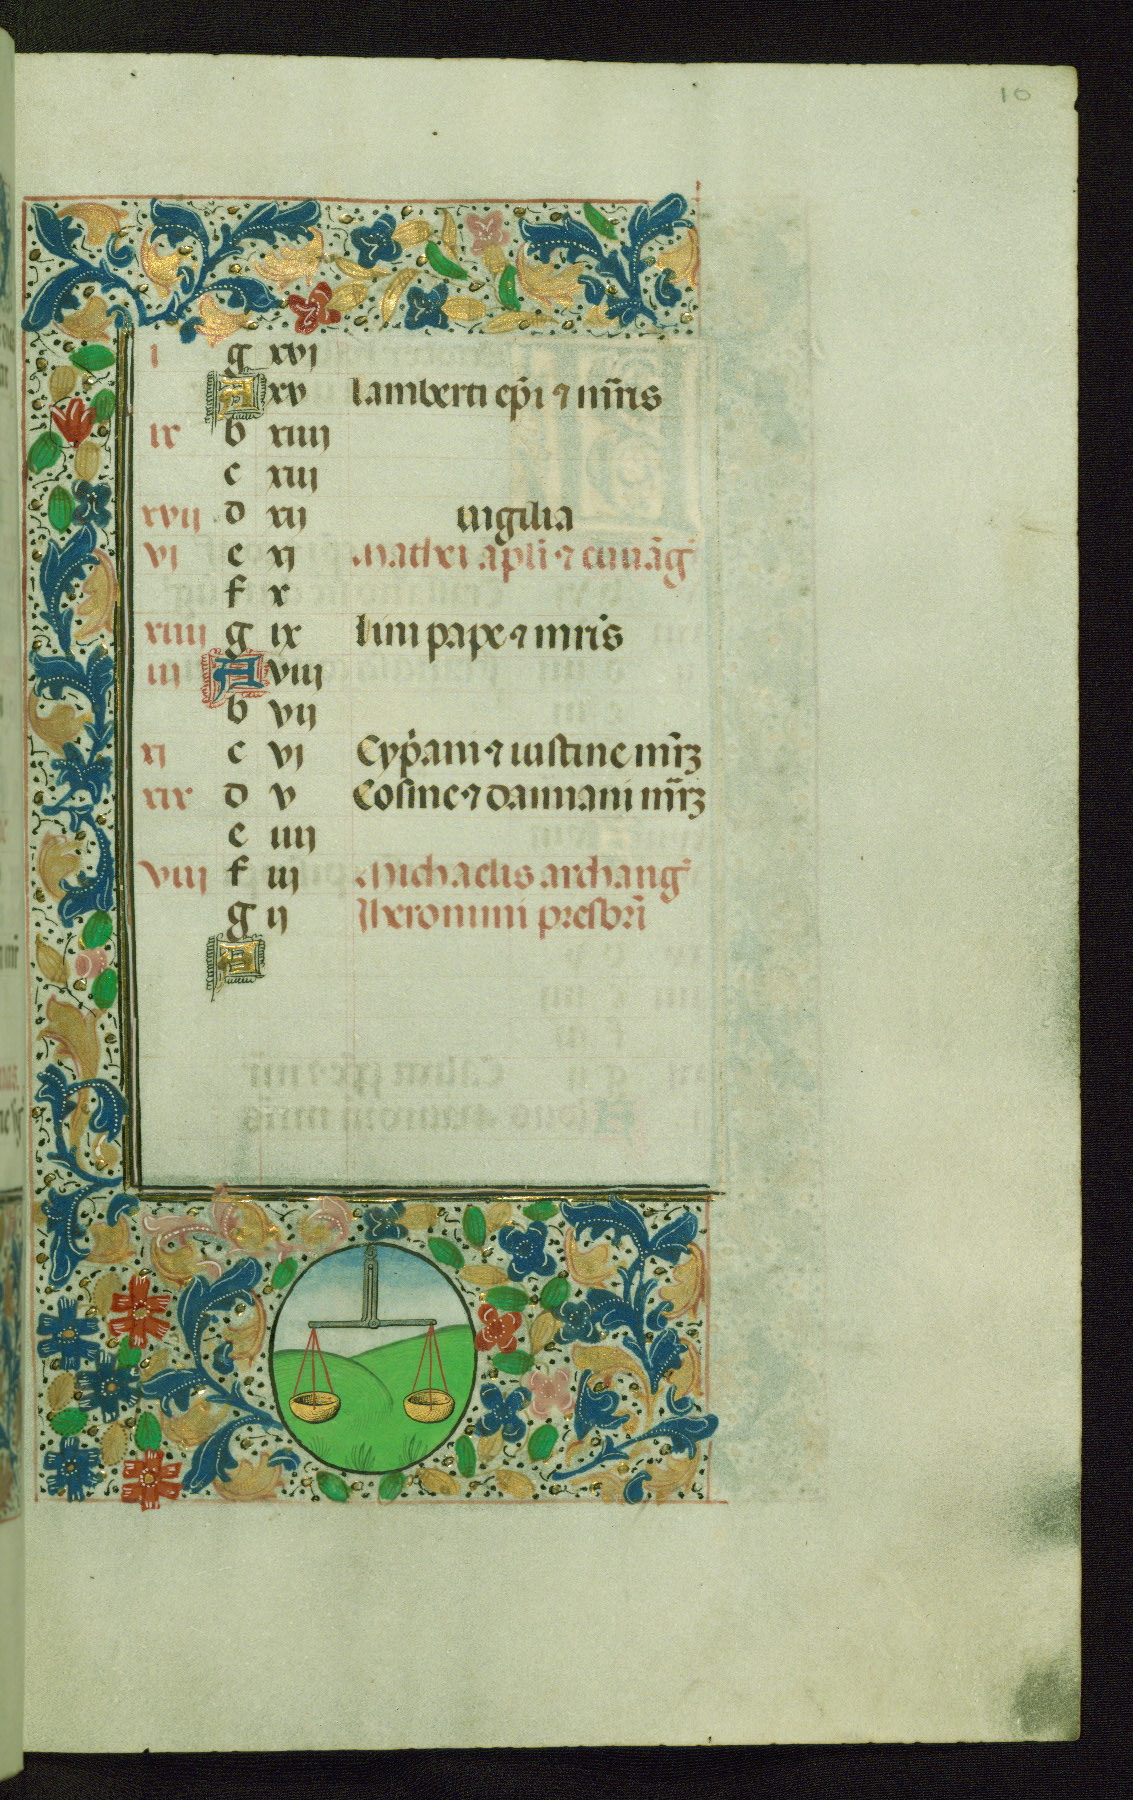 10
i g xvi
A xv lamberti ep̄i ⁊ mr̄is
ix b xiiii
c xiii
xvii d xii uigilia
vi e xi Mathei apl̄i ⁊ euuāg
f x
xiiii g ix lini pape ⁊ mr̄is
iii A viii
b vii
xi c vi Cyp̄ani ⁊ iustine mr̄ꝝ
xix d v Cosme ⁊ damiani mr̄ꝝ
e iiii
viii f iii Michaelis archang
g ii Iheronimi presbr̄i
A